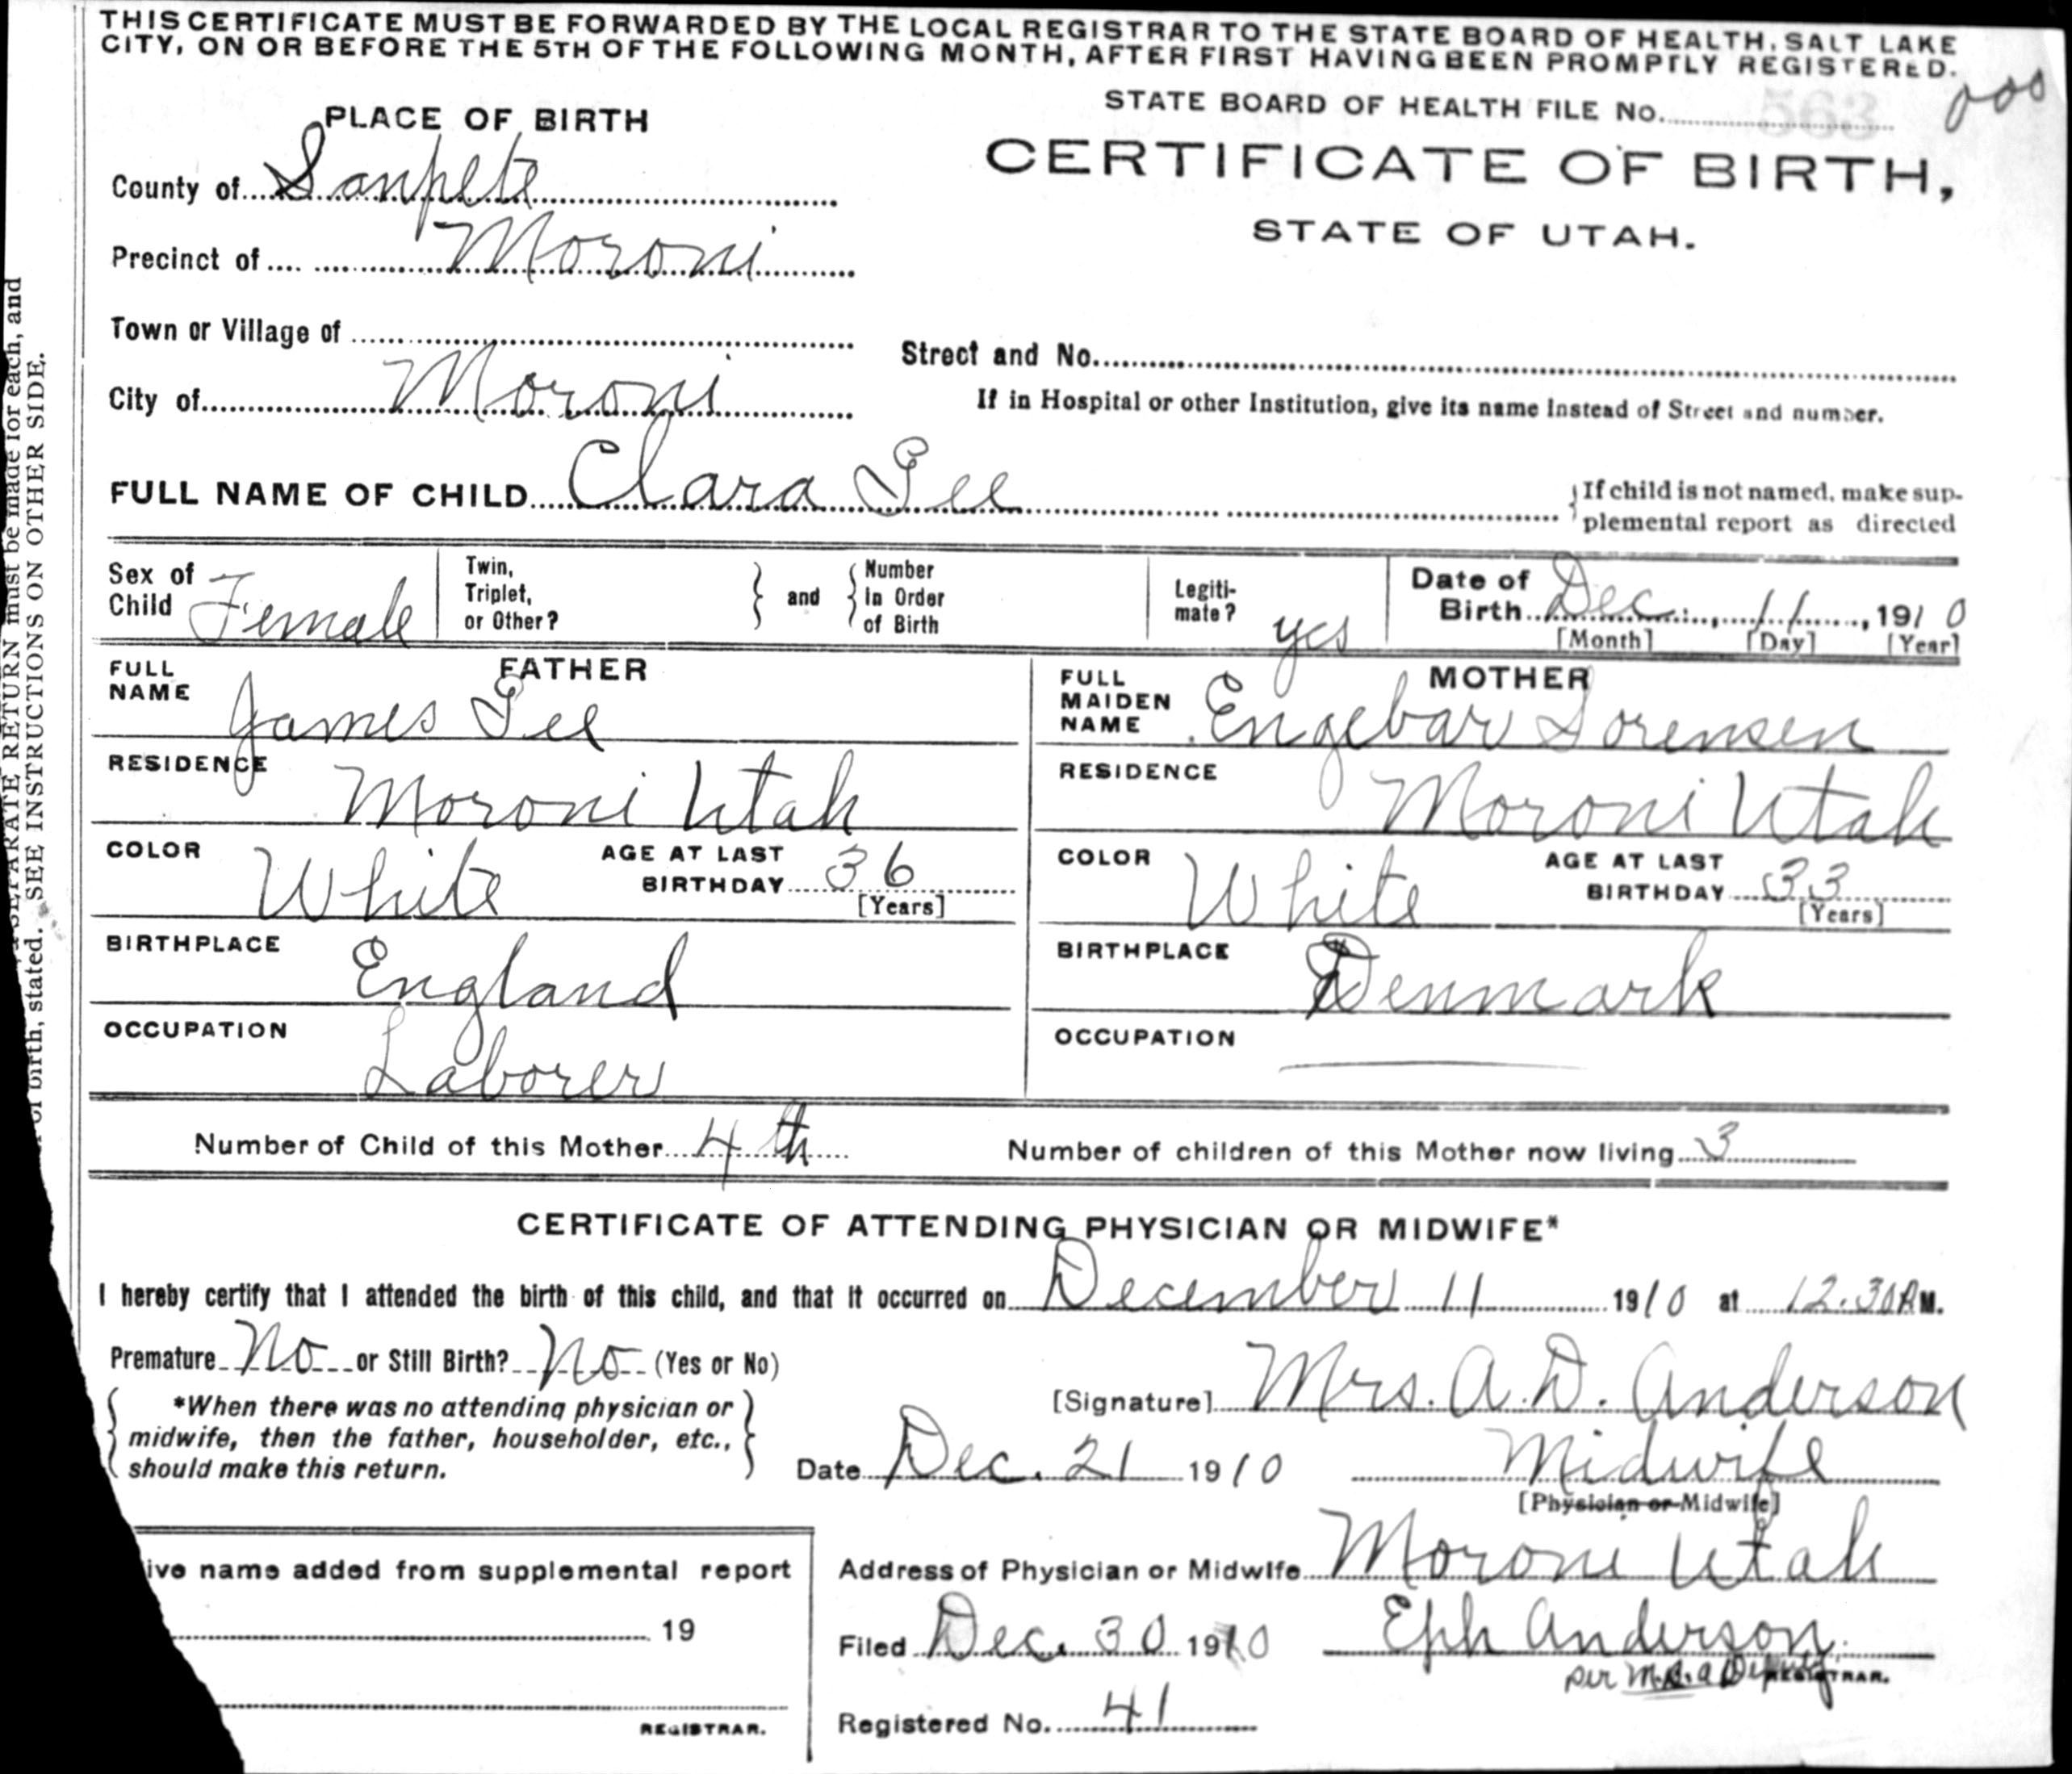 THIS CERTIFICATE MUST BE FORWARDED BY THE LOCAL REGISTRAR TO THE STATE BOARD OF HEALTH, SALT LAKE
CITY, ON OR BEFORE THE 5TH OF THE FOLLOWING MONTH, AFTER FIRST HAVING BEEN PROMPTLY REGISTERED.
STATE BOARD OF HEALTH FILE No. 563
PLACE OF BIRTH
CERTIFICATE OF BIRTH,
County of Sanpete
STATE OF UTAH.
Precinct of Moroni
Town or Village of
Street and No.
City of Moroni
If in Hospital or other Institution, give its name instead of Street and number.
FULL NAME OF CHILD Clara Gee
{If child is not named, make sup-
plemental report as directed
Sex of Child Female
Twin, Triplet, or Other? } and { Number in Order of Birth
Legiti-mate? yes
Date of Birth Dec. 11, 1910
[Month] [Day] [Year]
FATHER
FULL NAME James Gee
RESIDENCE Moroni Utah
COLOR White AGE AT LAST BIRTHDAY 36
[Years]
BIRTHPLACE England
OCCUPATION Laborer
MOTHER
FULL MAIDEN NAME Engebar Sorensen
RESIDENCE Moroni Utah
COLOR White AGE AT LAST BIRTHDAY 33
[Years]
BIRTHPLACE Denmark
OCCUPATION
Number of Child of this Mother 4th Number of children of this Mother now living 3
CERTIFICATE OF ATTENDING PHYSICIAN OR MIDWIFE*
I hereby certify that I attended the birth of this child, and that it occurred on December 11 1910 at 12.30 A M.
Premature No or Still Birth? No (Yes or No)
[Signature] Mrs. A. D. Anderson
*When there was no attending physician or
midwife, then the father, householder, etc.,
should make this return.
Date Dec. 21 1910 Midwife
[Physician or Midwife]
ive name added from supplemental report
19
REGISTRAR.
Address of Physician or Midwife Moroni Utah
Filed Dec. 30 1910 Eph Anderson
per M.A.A Deputy REGISTRAR.
Registered No. 41
SEPARATE RETURN must be made for each, and
of birth, stated. SEE INSTRUCTIONS ON OTHER SIDE.